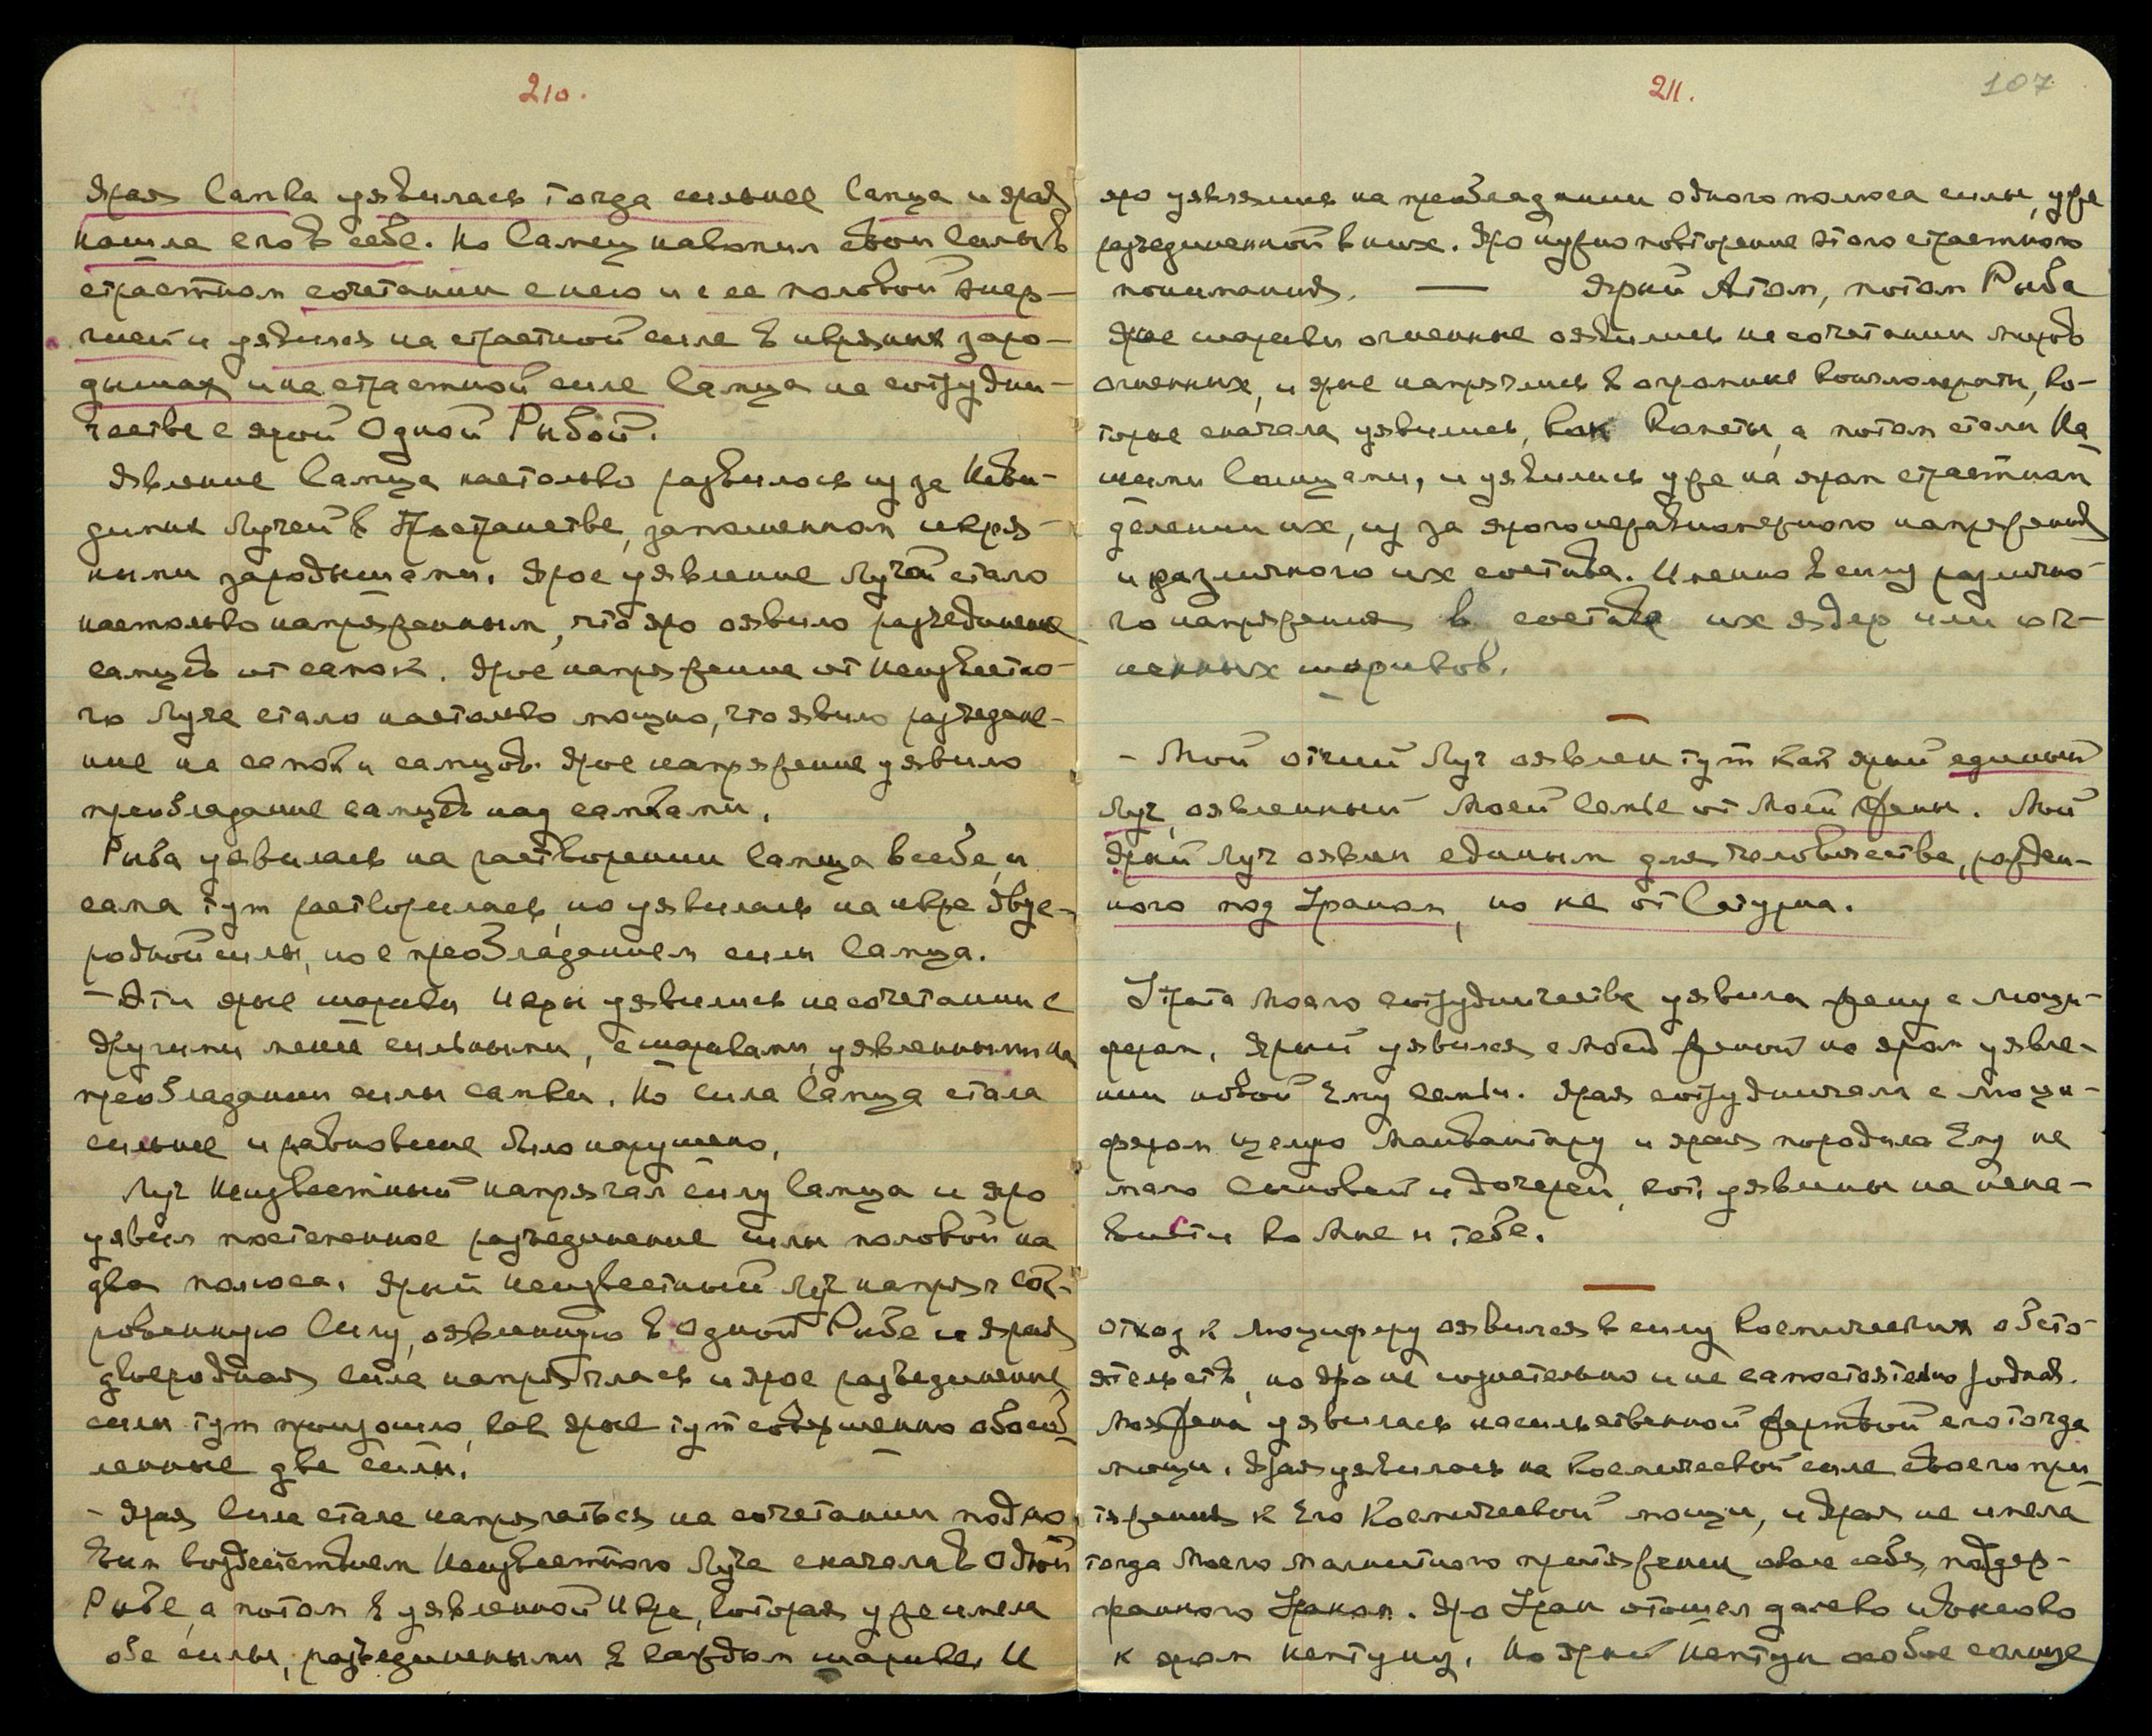 210.
Ярая Самка уявилась тогда сильнее Самца и ярая
носила его в себе. Но Самец накопил свои силы в
страстном сочетании с нею и с ее половой энер-
гией и уявился на страстной силе в икряных заро-
дышах и на страстной силе Самца на сотрудни-
честве с ярой Одной Рыбой.
Явление Самца настолько развилось из за Неви-
димых Лучей в Пространстве, заполненном икря-
ными зародышами. Ярое уявление Лучей стало
настолько напряженным, что яро оявило разъединение
самцов от самок. Ярое напряжение от Неизвестно-
го Луча стало настолько мощно, что явило разъедине-
ние на самок и самцов. Ярое напряжение уявило
преобладание самцов над самками.
Рыба уявилась на растворении Самца в себе, и
сама тут растворилась, но уявилась на икре двуе-
родной силы, но с преобладанием силы Самца.
– Эти ярые шарики Икры уявились на сочетании с
другими менее сильными, с шариками, уявленными на
преобладании силы самки. Но сила Самца стала
сильнее и равновесие было нарушено.
Луч Неизвестный напрягал силу Самца и яро
уявил постепенное разъединение силы половой на
два полюса. Ярый Неизвестный Луч напряг Сок-
ровенную Силу, оявленную в Одной Рыбе и ярая
двуеродная сила напряглась и ярое разъединение
силы тут произошло, как ярые тут совершенно обособ-
ленные две силы.
– Ярая Сила стала напрягаться на сочетании под но-
вым воздействием Неизвестного Луча сначала в Одной
Рыбе, а потом в уявленной Икре, которая уже имела
обе силы, разъединенными в каждом шарике. И
211.
107
яро уявляшь на преобладании одного полюса силы, уже
разъединенной в них. Яро нужно повторение этого страстного
понимания. — Ярый Атом, потом Рыба
Ярые шарики огненные оявились на сочетании миров
огненных, и ярые напряглись в огромные конгломераты, ко-
торые сначала уявились, как Кометы, а потом стали На-
шими Солнцами, и уявились уже на яром страстном
делении их, из за ярого неравномерного напряжения
и различного их состава. Именно в силу различно-
го напряжения в составе их ядер или ог-
ненных шариков.
– Мой отчий Луч оявлен тут как ярый единый
Луч, оявленный Моей Семье от Моей Жены. Мой
Ярый Луч оявлен единым для человечества, рожден-
ного под Ураном, но не от Сатурна.
Утрата Моего сотрудничества уявила Жену с Люци-
фером. Ярый уявился с Моей Женой на яром уявле-
нии новой Ему Семьи. Ярая сотрудничала с Люци-
фером целую Манвантару и ярая породила Ему не
мало Сыновей и Дочерей, кот. уявлены на нена-
висти ко Мне и тебе.
Отход к Люциферу оявился в силу космических обсто-
ятельств, но яро не сознательно и не самостоятельно родная.
Моя Жена уявилась насильственной жертвой его тогда
мощи. Ярая уявилась на космической силе своего при-
тяжения к Его Космической мощи, и Ярая не имела
тогда Моего Магнитного притяжения около себя, поддер-
жанного Ураном. Яро Уран отошел далеко и близко
к ярому Нептуну. Но Ярый Нептун особое солнце